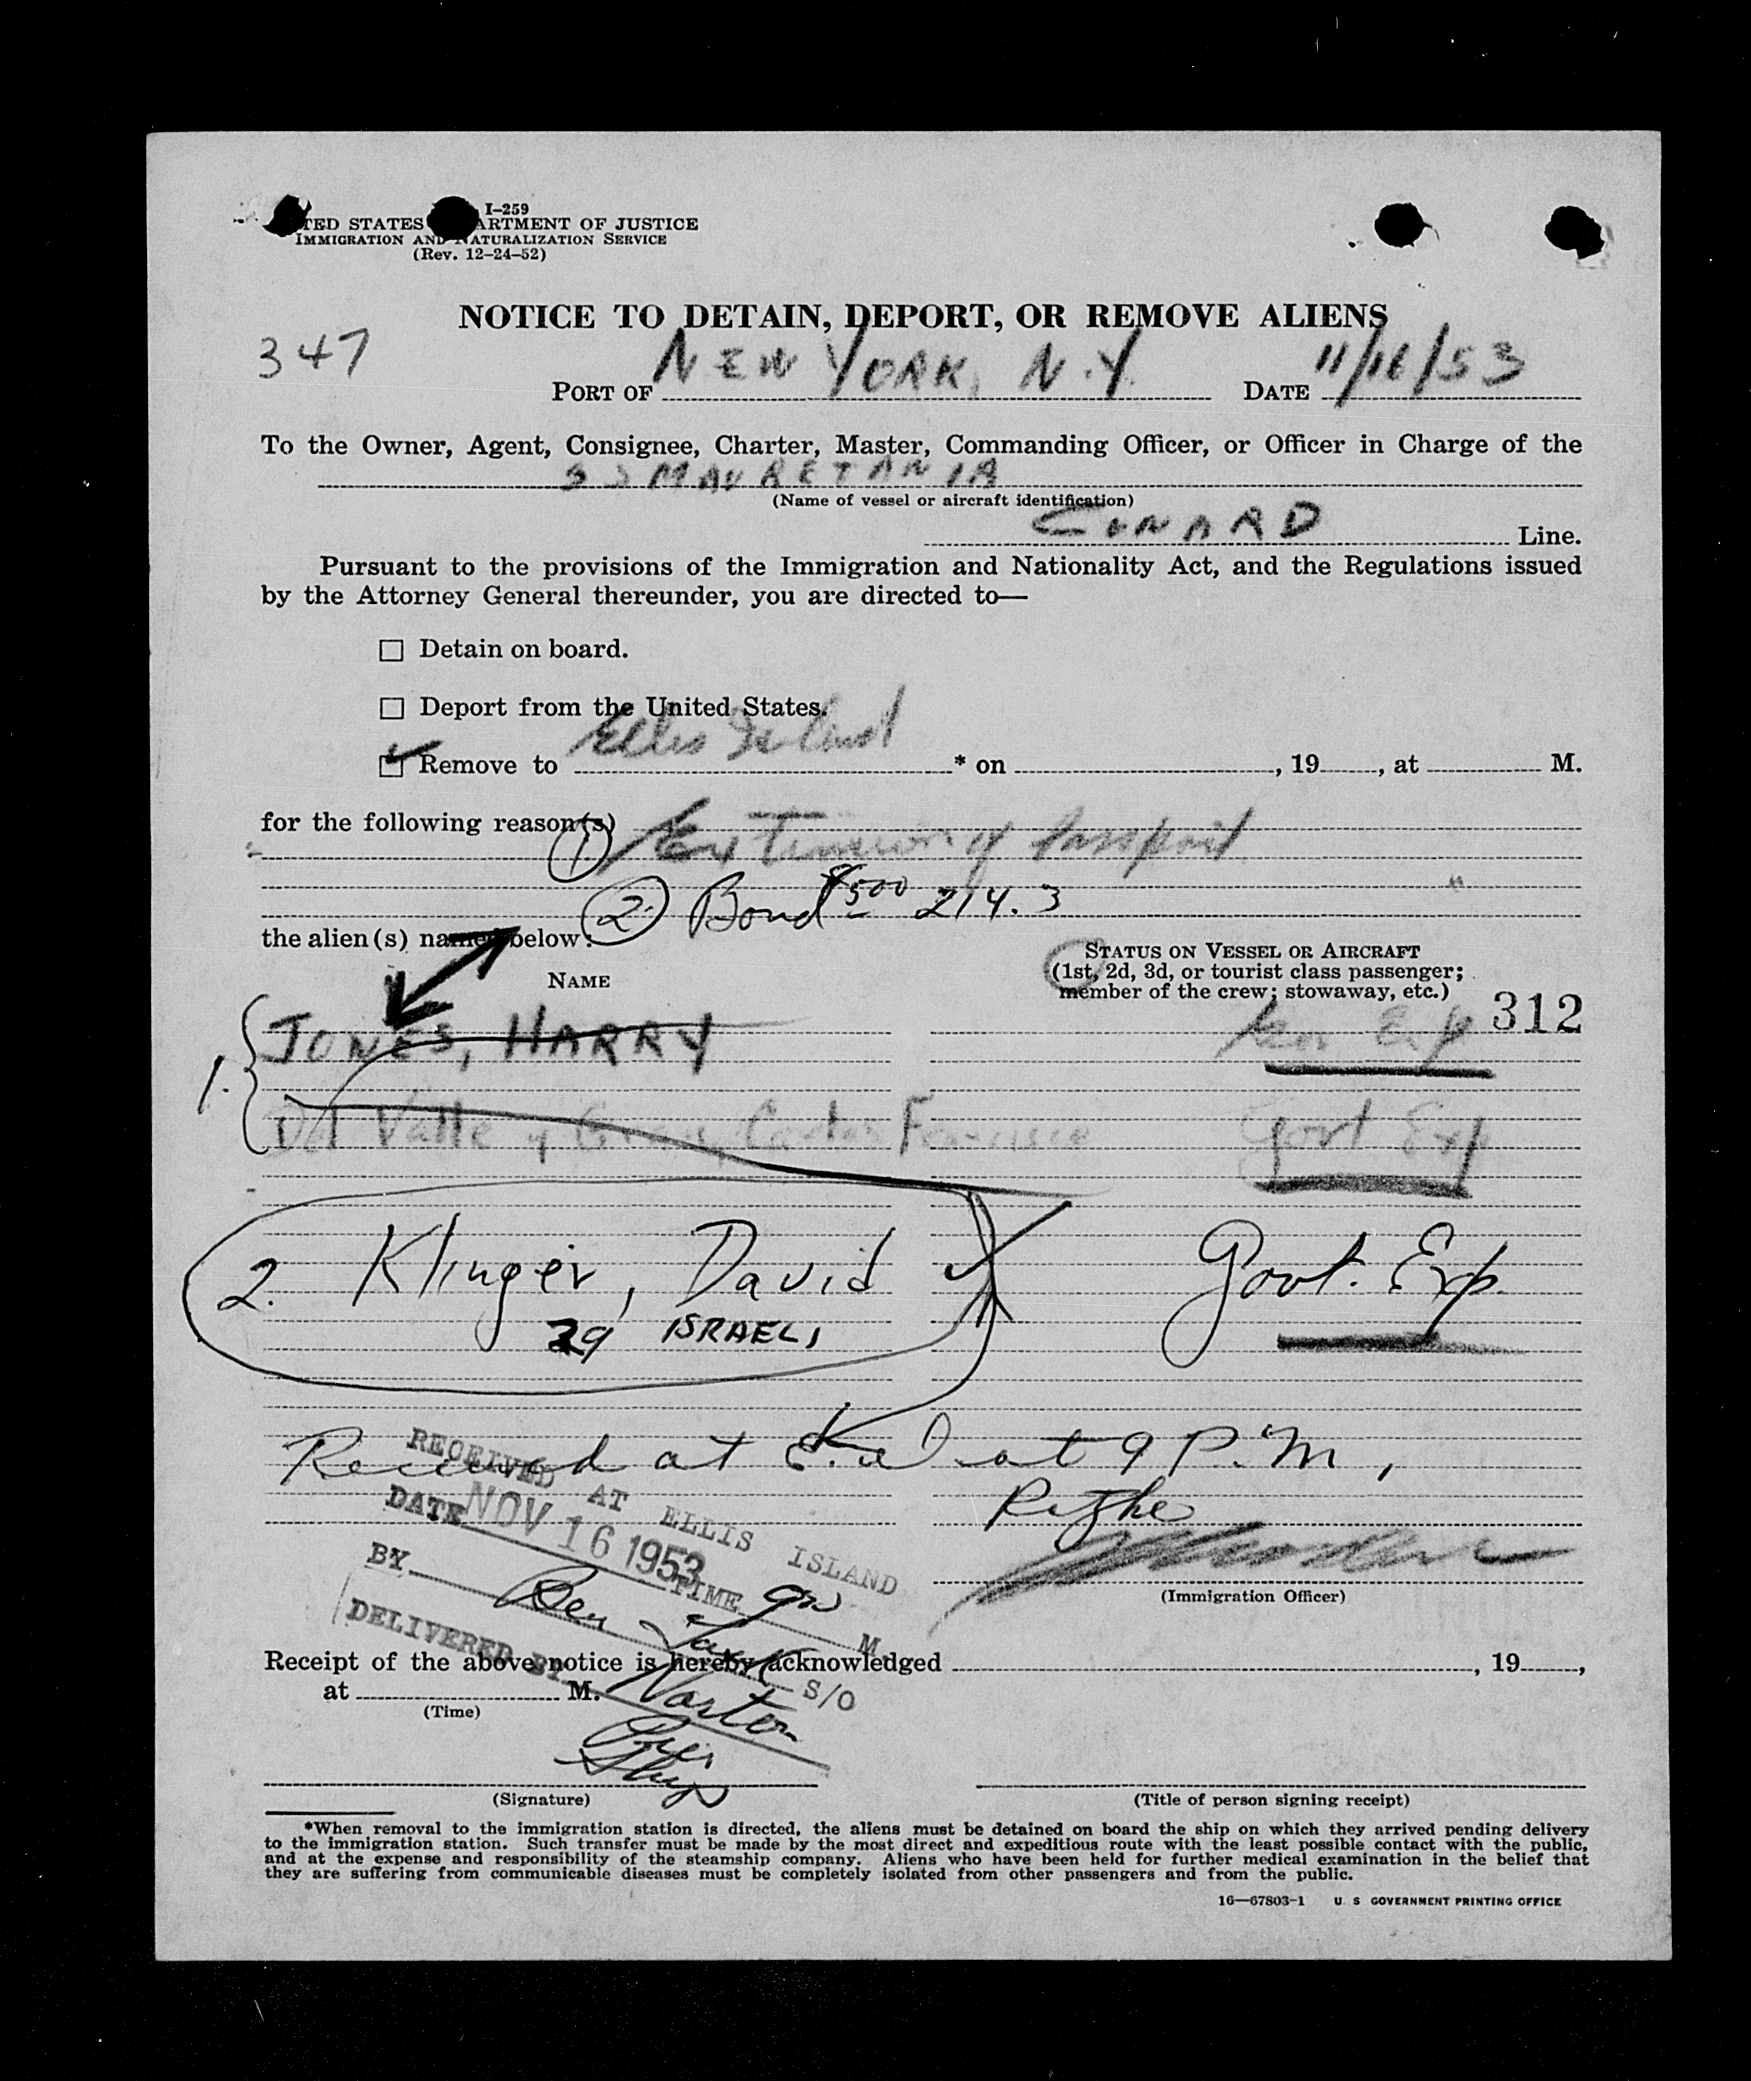 I-259
TED STATES ARTMENT OF JUSTICE
IMMIGRATION AND NATURALIZATION SERVICE
(Rev. 12-24-52)
NOTICE TO DETAIN, DEPORT, OR REMOVE ALIENS
347
PORT OF NEW YORK, N.Y. DATE 11/16/53
To the Owner, Agent, Consignee, Charter, Master, Commanding Officer, or Officer in Charge of the
SS MAURETANIA
(Name of vessel or aircraft identification)
CUNARD Line.
Pursuant to the provisions of the Immigration and Nationality Act, and the Regulations issued
by the Attorney General thereunder, you are directed to—
☐ Detain on board.
☐ Deport from the United States.
☑ Remove to Ellis Island * on , 19 , at M.
for the following reason(s)
(1) Extension of Passport
(2.) Bond $500 214.3
the alien(s) named below:
STATUS ON VESSEL OR AIRCRAFT
(1st, 2d, 3d, or tourist class passenger;
member of the crew; stowaway, etc.)
NAME
312
1. JONES, HARRY Exp
Del Valle y Carlos Govt Exp
2. Klinger, David Govt. Exp.
29 ISRAELI
Received at E.I. at 9 P.M,
RECEIVED AT ELLIS ISLAND
DATE NOV 16 1953 TIME 9PM M.
BY Ben S/O
DELIVERED BY Norton
(Immigration Officer)
Receipt of the above notice is hereby acknowledged , 19 ,
at M.
(Time)
(Signature) (Title of person signing receipt)
*When removal to the immigration station is directed, the aliens must be detained on board the ship on which they arrived pending delivery
to the immigration station. Such transfer must be made by the most direct and expeditious route with the least possible contact with the public,
and at the expense and responsibility of the steamship company. Aliens who have been held for further medical examination in the belief that
they are suffering from communicable diseases must be completely isolated from other passengers and from the public.
16—67803-1 U. S GOVERNMENT PRINTING OFFICE